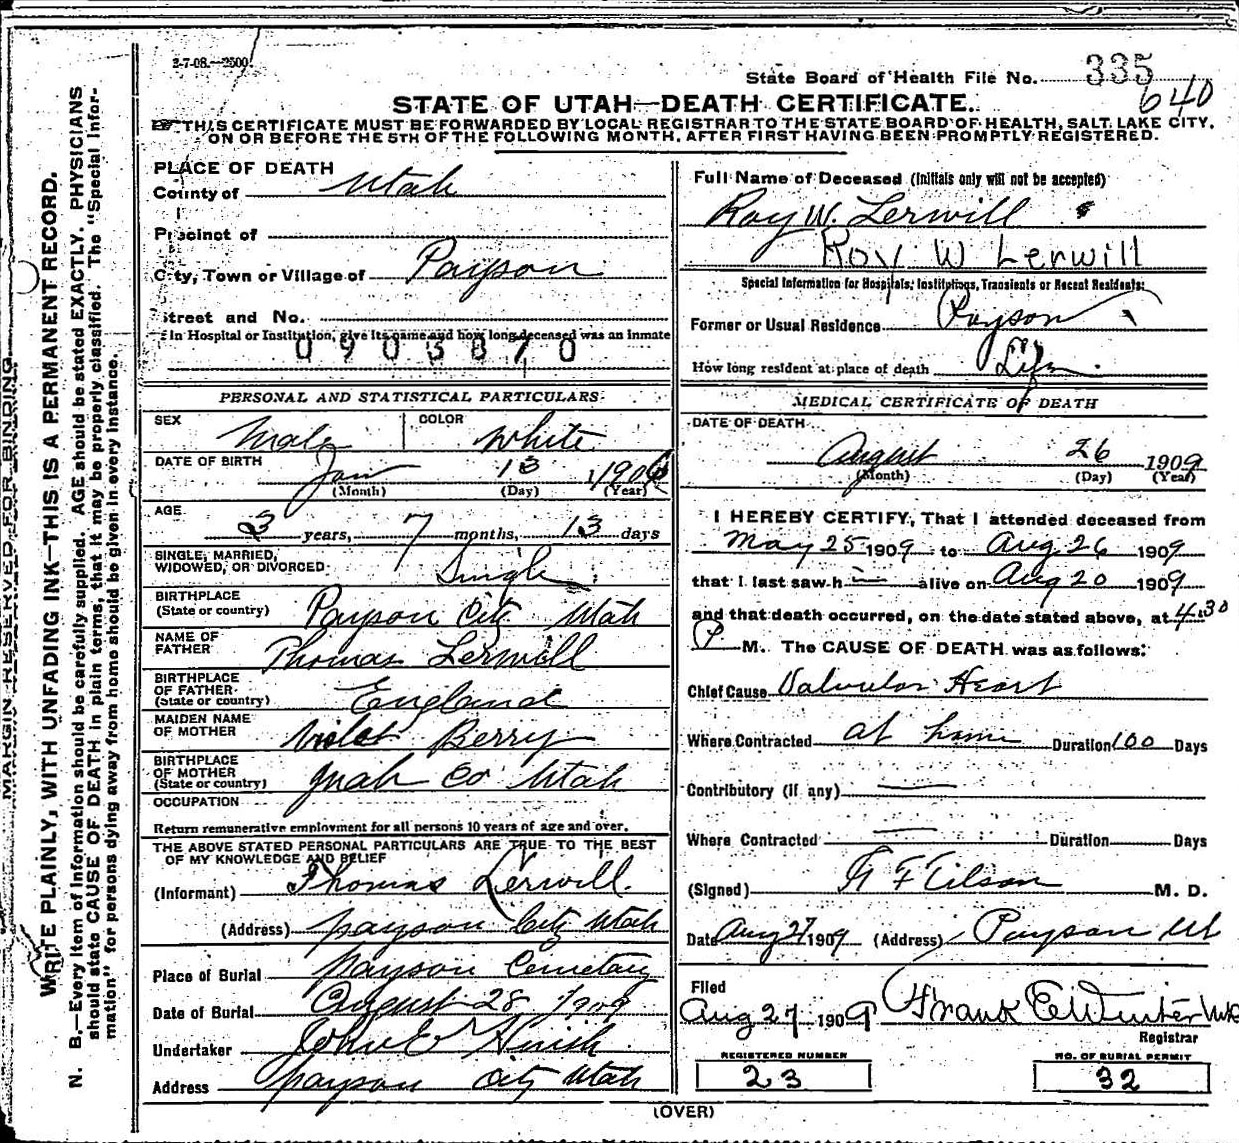 2-7-08.—2500
State Board of Health File No. 335
640
STATE OF UTAH—DEATH CERTIFICATE.
THIS CERTIFICATE MUST BE FORWARDED BY LOCAL REGISTRAR TO THE STATE BOARD OF HEALTH, SALT LAKE CITY,
ON OR BEFORE THE 5TH OF THE FOLLOWING MONTH, AFTER FIRST HAVING BEEN PROMPTLY REGISTERED.
MARGIN RESERVED FOR BINDING
WRITE PLAINLY, WITH UNFADING INK—THIS IS A PERMANENT RECORD.
N. B.—Every item of information should be carefully supplied. AGE should be stated EXACTLY. PHYSICIANS
should state CAUSE OF DEATH in plain terms, that it may be properly classified. The "Special Infor-
mation" for persons dying away from home should be given in every instance.
PLACE OF DEATH
County of Utah
Precinct of
City, Town or Village of Payson
Street and No.
If in Hospital or Institution, give its name and how long deceased was an inmate
0903870
PERSONAL AND STATISTICAL PARTICULARS.
SEX Male COLOR White
DATE OF BIRTH Jan 13 1906
(Month) (Day) (Year)
AGE
3 years, 7 months, 13 days
SINGLE, MARRIED,
WIDOWED, OR DIVORCED Single
BIRTHPLACE
(State or country) Payson City Utah
NAME OF
FATHER Thomas Lerwill
BIRTHPLACE
OF FATHER
(State or country) England
MAIDEN NAME
OF MOTHER Violet Berry
BIRTHPLACE
OF MOTHER
(State or country) Utah Co Utah
OCCUPATION
Return remunerative employment for all persons 10 years of age and over.
THE ABOVE STATED PERSONAL PARTICULARS ARE TRUE TO THE BEST
OF MY KNOWLEDGE AND BELIEF
(Informant) Thomas Lerwill
(Address) Payson City Utah
Place of Burial Payson Cemetary
Date of Burial August 28 1909
Undertaker John E Huish
Address Payson City Utah
Full Name of Deceased (Initials only will not be accepted)
Roy W. Lerwill
Roy W Lerwill
Special Information for Hospitals, Institutions, Transients or Recent Residents:
Former or Usual Residence Payson
How long resident at place of death Life
MEDICAL CERTIFICATE OF DEATH
DATE OF DEATH
August 26 1909
(Month) (Day) (Year)
I HEREBY CERTIFY, That I attended deceased from
May 25 1909 to Aug 26 1909
that I last saw h im alive on Aug 20 1909
and that death occurred, on the date stated above, at 4.30
P M. The CAUSE OF DEATH was as follows:
Chief Cause Valvular Heart
Where Contracted at home Duration 100 Days
Contributory (if any) —
Where Contracted — Duration Days
(Signed) M. D.
Date Aug 27 1909 (Address) Payson Ut
Filed
Aug 27 1909 Frank E Winter MD
Registrar
REGISTERED NUMBER
23
NO. OF BURIAL PERMIT
32
(OVER)